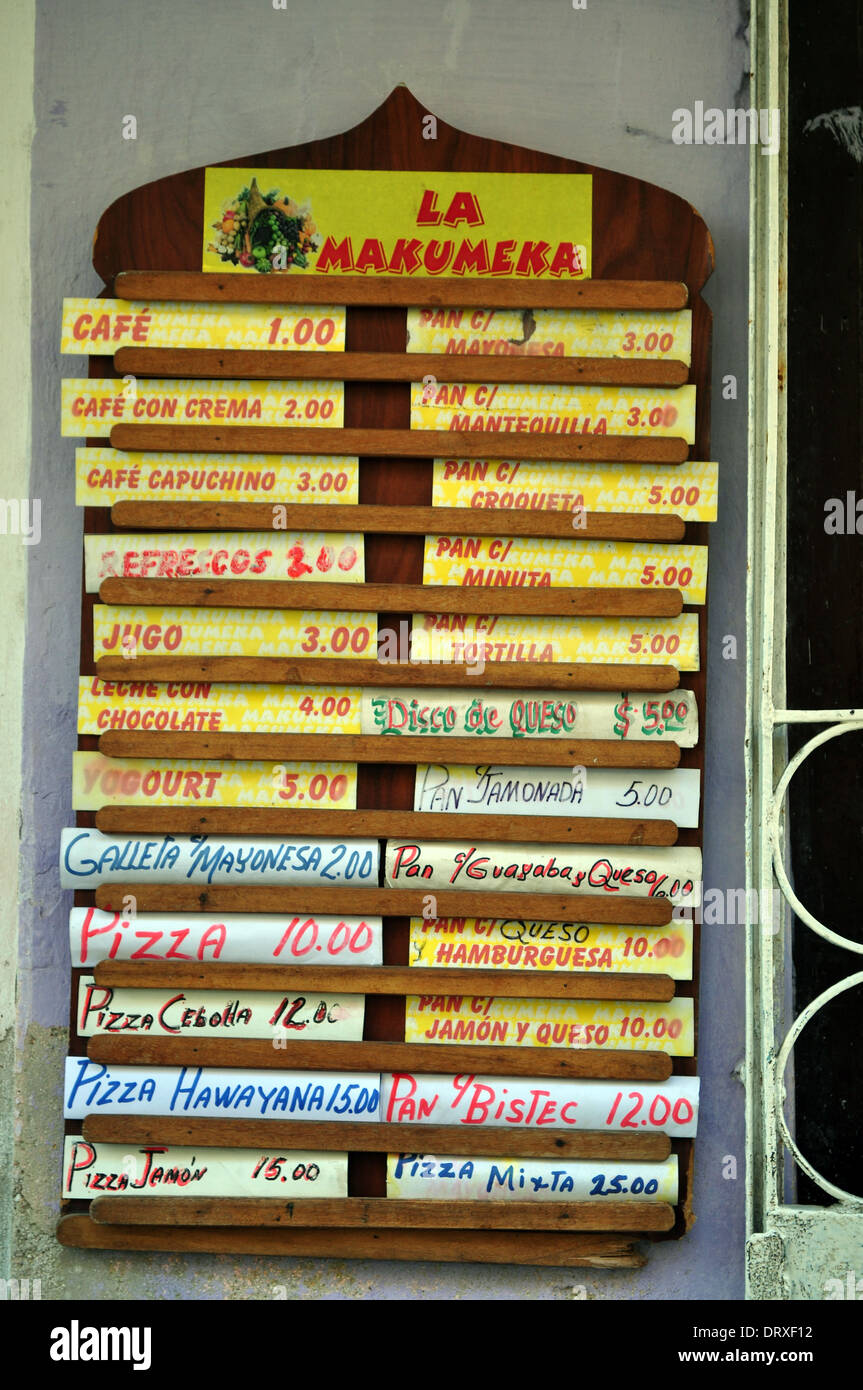 LA
MAKUMEKA
CAFÉ 1.00
CAFÉ CON CREMA 2.00
CAFÉ CAPUCHINO 3.00
REFRESCOS 2.00
JUGO 3.00
LECHE CON
CHOCOLATE 4.00
YOGOURT 5.00
GALLETA C/MAYONESA 2.00
PIZZA 10.00
PIZZA CEBOLLA 12.00
PIZZA HAWAYANA 15.00
PIZZA JAMÓN 15.00
PAN C/
MAYONESA 3.00
PAN C/
MANTEQUILLA 3.00
PAN C/
CROQUETA 5.00
PAN C/
MINUTA 5.00
PAN C/
TORTILLA 5.00
Disco de QUESO $ 5.00
PAN C/JAMONADA 5.00
PAN C/GUAYABA y QUESO 6.00
PAN C/ QUESO
Y HAMBURGUESA 10.00
PAN C/
JAMÓN Y QUESO 10.00
PAN C/BISTEC 12.00
PIZZA MIXTA 25.00
alamy
Image ID: DRXF12
www.alamy.com